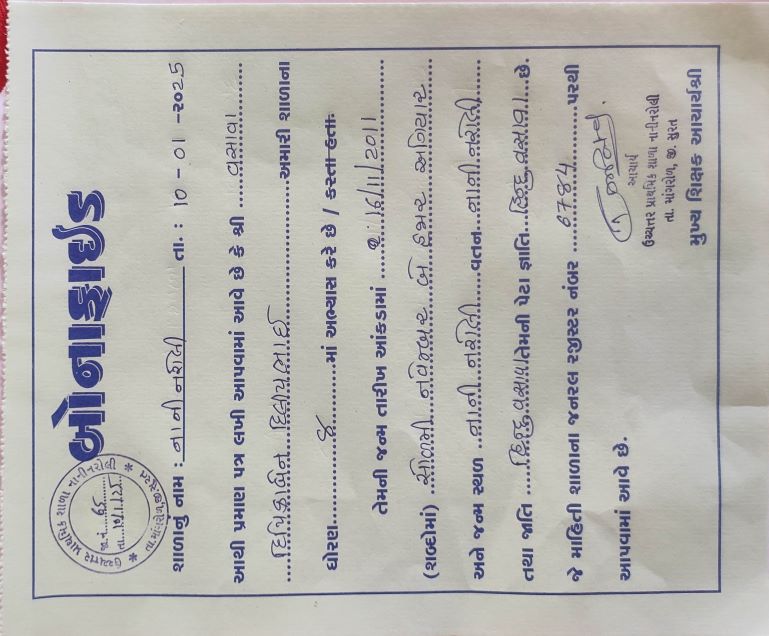 બોનાફાઇડ
ઉચ્ચત્તર પ્રાથમિક શાળા નાનીનરોલી
જા.નં.
તા.
શાળાનું નામ : નાની નરોલી તા. : 10 - 01 - 2025
આથી પ્રમાણ પત્ર લખી આપવામાં આવે છે કે શ્રી વસાવા
દિપિકાબેન દિલીપભાઈ અમારી શાળાના
ધોરણ માં અભ્યાસ કરે છે / કરતા હતા
તેમની જન્મ તારીખ આંકડામાં 16/11/2011
(શબ્દોમાં) સોળમી નવેમ્બર બે હજાર અગિયાર
અને જન્મ સ્થળ નાની નરોલી વતન નાની નરોલી
તથા જાતિ હિન્દુ વસાવા તેમની પેટા જ્ઞાતિ હિન્દુ વસાવા છે.
જે માહિતી શાળાના જનરલ રજીસ્ટર નંબર 6784 પરથી
આપવામાં આવે છે.
આચાર્ય
ઉચ્ચત્તર પ્રાથમિક શાળા નાનીનરોલી
તા. માંગરોળ, જી. સુરત
મુખ્ય શિક્ષક આચાર્યશ્રી